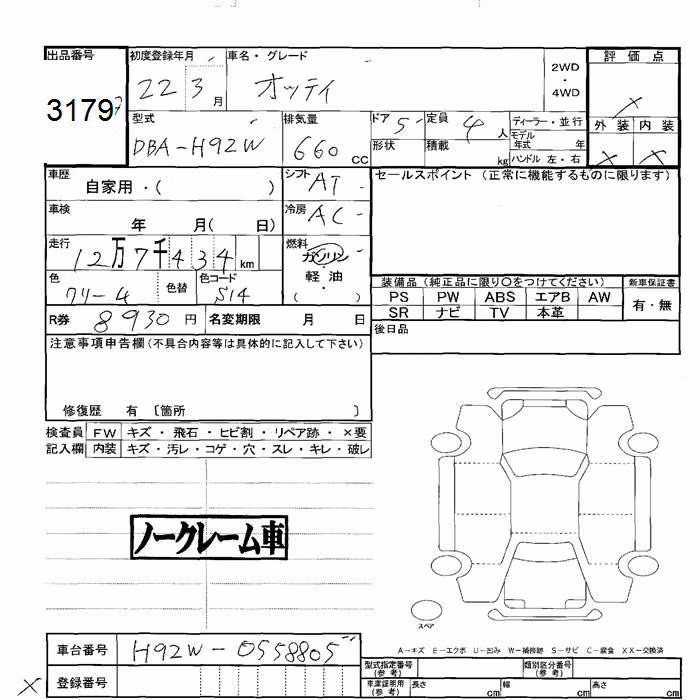 出品番号 初度登録年月 車名・グレード 評価点
3179 22 3月 オッティ 2WD・4WD ×
型式 排気量 ドア 定員 ディーラー・並行 外装 内装
DBA-H92W 660cc 5 4人 モデル年式 年
形状 積載 kg ハンドル 左・右 × ×
車歴 シフト セールスポイント (正常に機能するものに限ります)
自家用・( ) AT
車検 冷房
年 月( 日) AC
走行 燃料
12万7千434km ガソリン・軽油
色 色替 色コード ( )
クリーム S14
装備品(純正品に限り○をつけてください) 新車保証書
PS PW ABS エアB AW 有・無
SR ナビ TV 本革
R券 8930円 名変期限 月 日 後日品
注意事項申告欄(不具合内容等は具体的に記入して下さい)
修復歴 有〔箇所 〕
検査員 FW キズ・飛石・ヒビ割・リペア跡・×要
記入欄 内装 キズ・汚レ・コゲ・穴・スレ・キレ・破レ
ノークレーム車
スペア
A-キズ E-エクボ U-凹み W-補修跡 S-サビ C-腐食 XX-交換済
車台番号 H92W-0558805
型式指定番号(参考) 類別区分番号(参考)
× 登録番号
車庫証明用(参考) 長さ cm 幅 cm 高さ cm